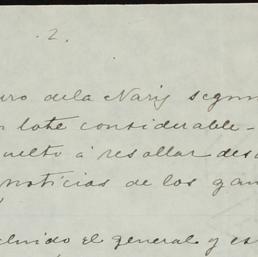 .2.
uro de la Nariz segun
lote considerable -
uelto á resollar des
noticias de los gan
cluido el general y es